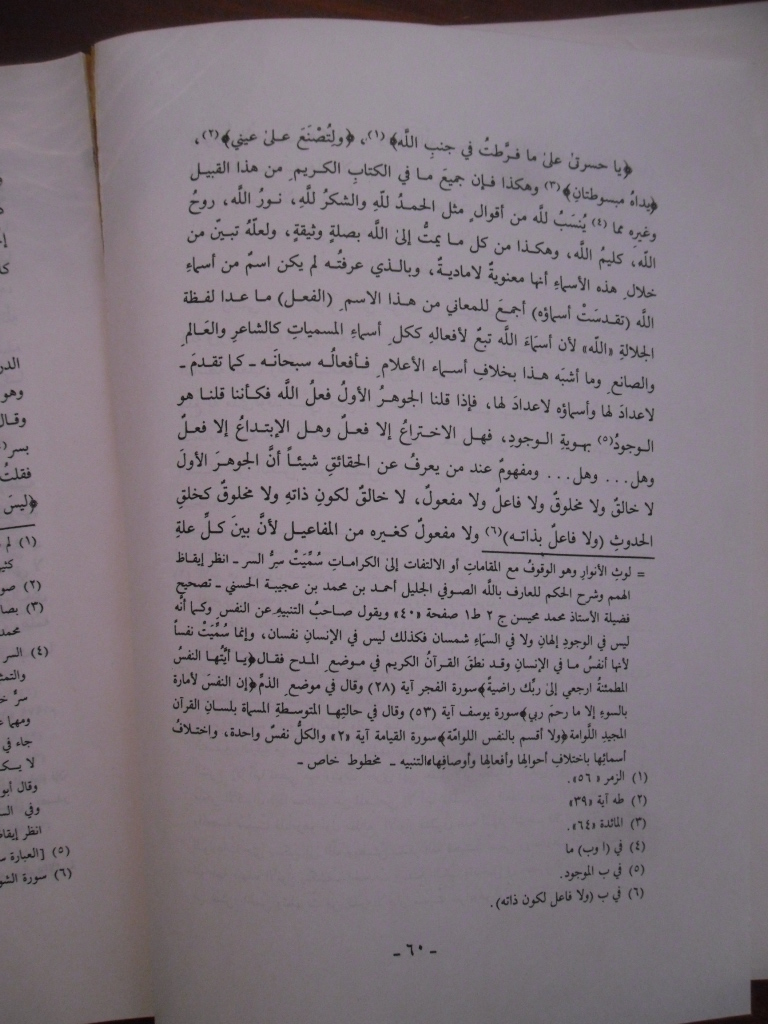 ﴿يا حسرتىٰ علىٰ ما فرَّطتُ في جنبِ اللَّه﴾(١)، ﴿ولِتُصْنَعَ علىٰ عيني﴾(٢)،
﴿يداهُ مبسوطتانِ﴾(٣) وهكذا فإن جميعَ ما في الكتابِ الكريم من هذا القبيل
وغيره مما (٤) يُنسَبُ للَّه من أقوالٍ مثل الحمدُ للَّهِ والشكرُ للَّهِ، نورُ اللَّه، روحُ
اللَّه، كليمُ اللَّه، وهكذا من كل ما يمتُّ إلىٰ اللَّه بصلةٍ وثيقةٍ، ولعلّهُ تبيّن من
خلالِ هذه الأسماءِ أنها معنويةٌ لاماديةٌ، وبالذي عرفتُه لم يكن اسمٌ من أسماءِ
اللَّه (تقدسَتْ أسماؤه) أجمعَ للمعاني من هذا الاسمِ (الفعل) ما عدا لفظة
الجلالةِ «اللَّه» لأن أسمَاءَ اللَّه تبعٌ لأفعالهِ ككلِ أسماءِ المسمياتِ كالشاعرِ والعَالمِ
والصانعِ وما أشبَه هذا بخلافِ أسماء الأعلامِ فأفعالُه سبحانَه ـ كما تقدمَ ـ
لاعدادَ لها وأسماؤه لاعدادَ لها، فإذا قلنا الجوهرُ الأولُ فعلُ اللَّه فكأننا قلنا هو
الوجودُ(٥) بهويةِ الوجودِ، فهل الاختراعُ إلا فعلٌ وهل الإبتداعُ إلا فعلٌ
وهل... وهل... ومفهومٌ عند من يعرفُ عن الحقائقِ شيئاً أنَّ الجوهرَ الأولَ
لا خالقٌ ولا مخلوقٌ ولا فاعلٌ ولا مفعولٌ، لا خالقٌ لكونِ ذاتهِ ولا مخلوقٌ كخلقِ
الحدوثِ (ولا فاعلٌ بذاته)(٦) ولا مفعولٌ كغيره من المفاعيل لأنَّ بينَ كلِّ علةٍ
= لوثِ الأنوارِ وهو الوقوفُ مع المقاماتِ أو الالتفات إلىٰ الكراماتِ سُمِّيَتْ سرُّ السر ـ انظر إيقاظ
الهمم وشرح الحكم للعارف باللَّه الصوفي الجليل أحمد بن محمد بن عجيبة الحسني ـ تصحيح
فضيلة الأستاذ محمد محيسن ج ٢ ط١ صفحة «٤٠» ويقول صاحبُ التنبيهِ عن النفس وكما أنُه
ليس في الوجودِ إلهانِ ولا في السمَاءِ شمسان فكذلك ليس في الإنسانِ نفسان، وإنما سُمِّيَتْ نفساً
لأنها أنفسُ ما في الإنسانِ وقد نطقَ القرآنُ الكريم في موضعِ المدحِ فقال﴿يا أيَّتُها النفسُ
المطمئنةُ ارجعي إلىٰ ربِّك راضيةً﴾سورة الفجر آية (٢٨) وقال في موضعِ الذمِّ﴿إن النفسَ لأمارة
بالسوءِ إلا ما رحمَ ربي﴾سورة يوسف آية (٥٣) وقال في حالتِها المتوسطةِ المسماة بلسانِ القرآنِ
المجيدِ اللَّوامة﴿ولا أقسم بالنفس اللوامّة﴾سورة القيامة آية «٢» والكلُّ نفسٌ واحدة، واختلافُ
أسمائِها باختلافِ أحوالِها وأفعالِها وأوصافِها»التنبيه ـ مخطوط خاص ـ
(١) الزمر «٥٦».
(٢) طه آية «٣٩»
(٣) المائدة «٦٤».
(٤) في (ا وب) ما
(٥) في ب الموجود.
(٦) في ب (ولا فاعل لكون ذاته).
- ٦٠ -
الدر
وهو
وقال
بسر
فقلتُ
﴿ليسَ
(١) لم
كثير
(٢) صو
(٣) بصا
محمد
(٤) السر
والتمث
سرُّ خ
ومهما ع
جاء في
لا يسك
وقال أبو
وفي الس
انظر إيقا
(٥) [العبارة س
(٦) سورة الشو